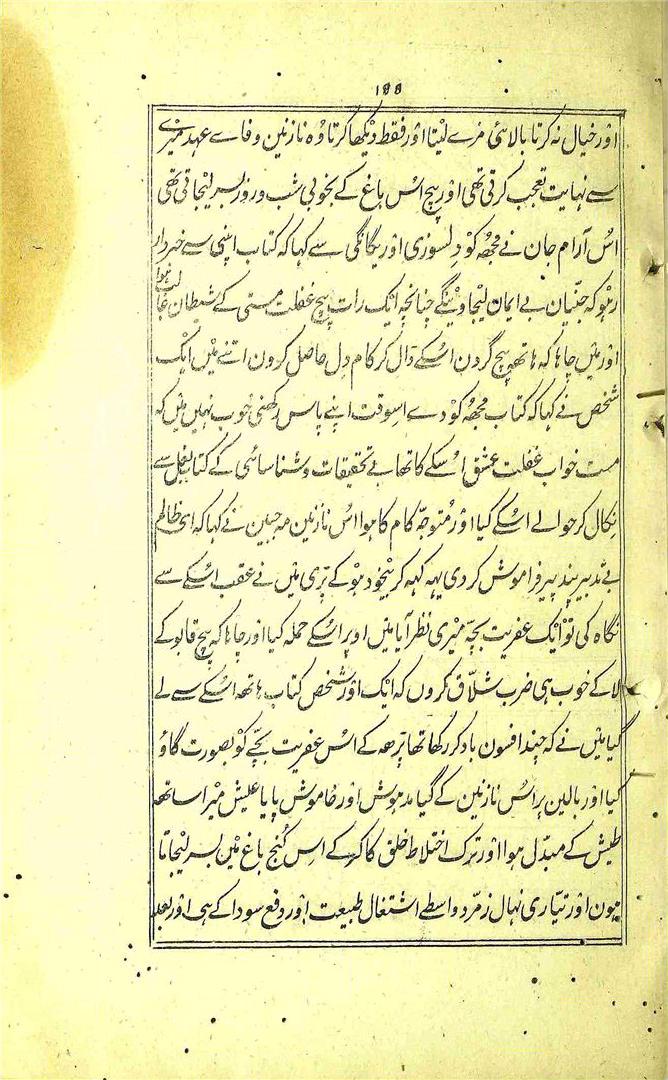 ۱۵۵
اور خیال نہ کرتا بالائی مزے لیتا اور فقط دیکھا کرتا وہ نازنین وفاے عہد میرے
سے نہایت تعجب کرتی تھی اور بیچ اس باغ کے بخوبی شب و روز بسر لیجاتی تھی
اس آرام جان نے مجھہ کو دلسوزی اور یگانگی سے کہا کہ کتاب اپنی سے خبردار
رہو کہ جنیان بے ایمان لیجاوینگے چنانچہ ایک رات بیچ غفلت مستی کے شیطان غالب ہوا
اور مین چاہا کہ ہاتھہ بیچ گردن اسکے ڈال کر کام دل حاصل کرون اتنے مین ایک
شخص نے کہا کہ کتاب مجھہ کو دے اسوقت اپنے پاس رکھنی خوب نہین مین کہ
مست خواب غفلت عشق اسکے کا تھا بے تحقیقات و شناسائی کے کتاب بغل سے
نکال کر حوالے اسکے کیا اور متوجہ کام کا ہوا اس نازنین مہ جبین نے کہا کہ ای ظالم
بے تدبیر پند پیر فراموش کردی یہہ کہہ کر بیخود ہو کے پڑی مین نے عقب اسکے سے
نگاہ کی تو ایک عفریت بچہ میری نظر آیا مین اوپر اسکے حملہ کیا اور چاہا کہ بیچ قابو کے
لا کے خوب ہی ضرب شلاق کروں کہ ایک اور شخص کتاب ہاتھہ اسکے سے لے
گیا مین نے کہ چند افسون یاد کر رکھا تھا پڑھہ کے اس عفریت بچے کو بصورت گاؤ
کیا اور بالین پر اس نازنین کے گیا مدہوش اور خاموش پایا عیش میرا ساتھہ
طیش کے مبدل ہوا اور ترک اختلاط خلق کا کر کے اس کنج باغ مین بسر لیجاتا
ہون اور تیاری نہال زمرد واسطے اشتغال طبیعت اور دفع سودا کے ہی اور بعد